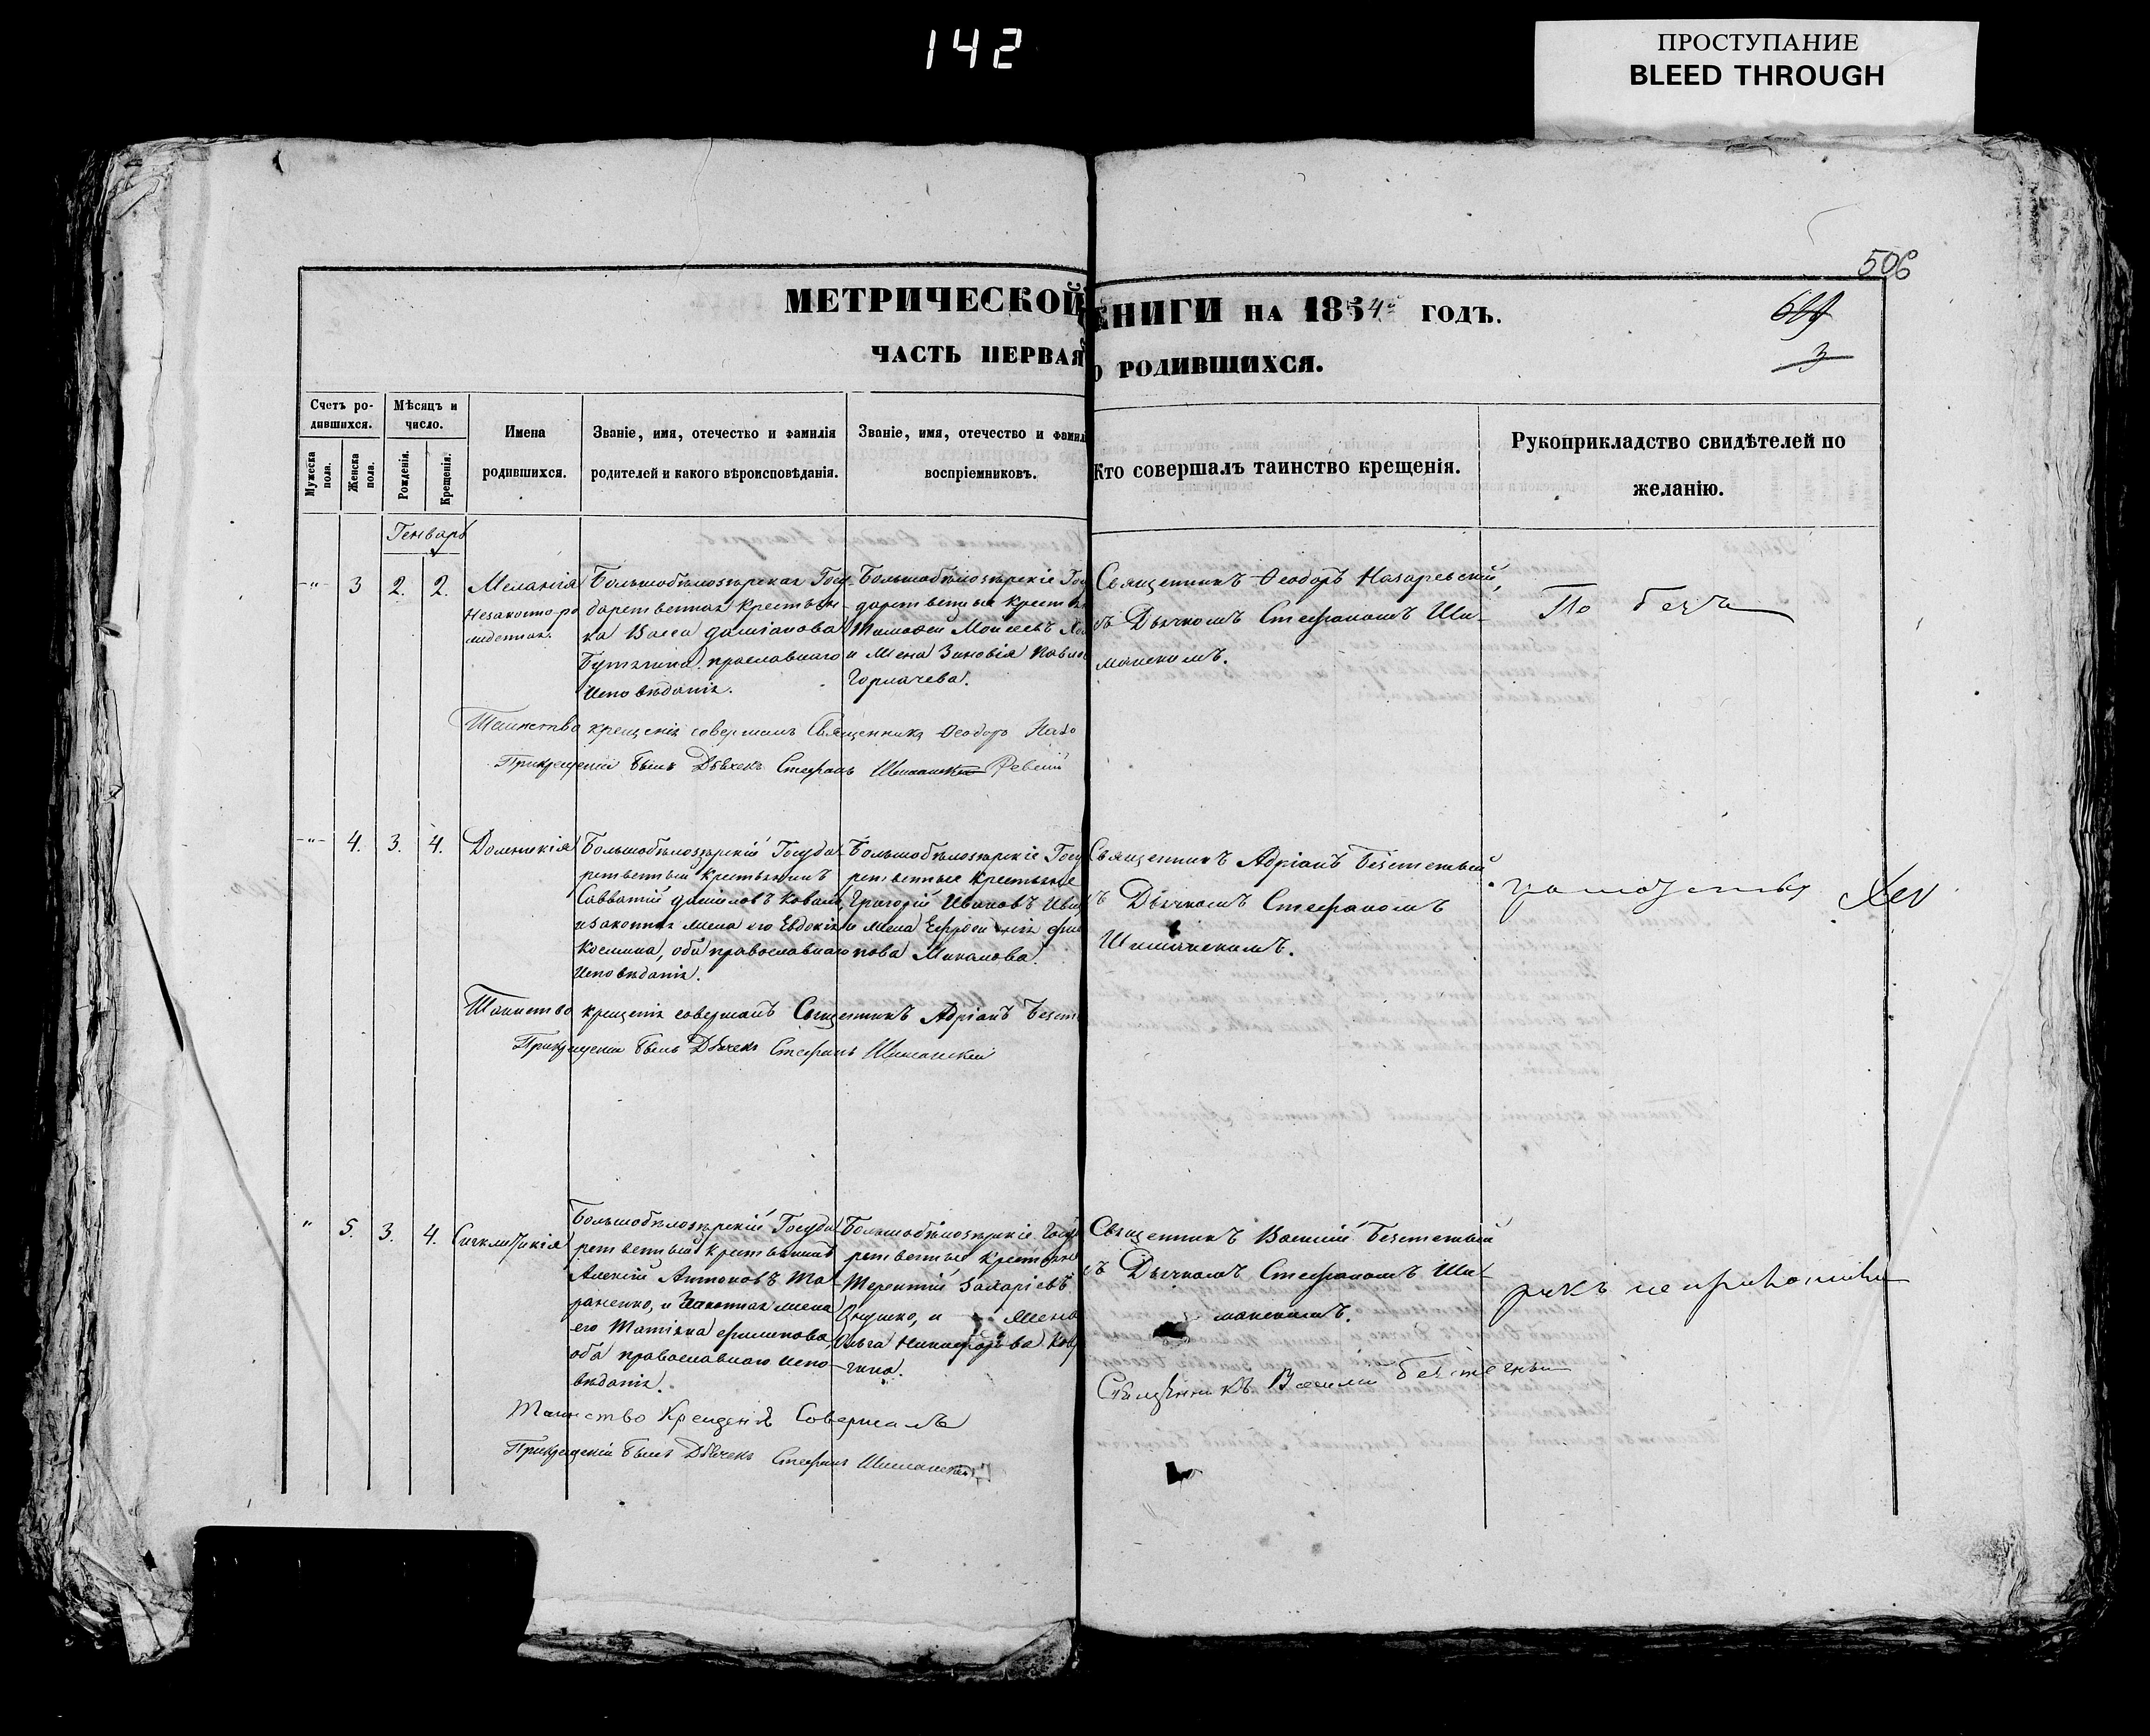 142
ПРОСТУПАНИЕ
BLEED THROUGH
506
МЕТРИЧЕСКОЙ КНИГИ НА 1854й ГОДЪ.
3
ЧАСТЬ ПЕРВАЯ О РОДИВШИХСЯ.
Счетъ ро-
дившихся.
Мужеска пола.
Женска пола.
Мѣсяцъ и
число.
Рожденія.
Крещенія.
Имена
родившихся.
Званіе, имя, отечество и фамилія
родителей и какого вѣроисповѣданія.
Званіе, имя, отечество и фамил
воспріемниковъ.
Кто совершалъ таинство крещенія.
Рукоприкладство свидѣтелей по
желанію.
Генварь
-"- 3 2. 2.
Меланія
Незаконно ро
жденная.
Большобѣлозѣрская Госу-
дарственная крестьян-
ка Васса Даміанова
православнаго
Исповѣданія.
Большобѣлозѣрскіе Госу
дарственные крестья
Тимофей Моисеевъ
и Жена Зиновія Павло
Горпачева.
Священникъ Ѳеодоръ Назаревскій,
съ Дьячкомъ Стефаномъ Ши-
манскимъ.
По безъ
Таинство крещенія совершалъ Священникъ Ѳеодоръ Наза
При крещеніи былъ Дьячекъ Стефанъ Шиманскій Ревскій
-"- 4. 3. 4.
Домникія
Большобѣлозѣрскій Госуда
рственный крестьянинъ
Савватій Даніиловъ Коваль,
и законная жена его Евдокія
Космина, оба православнаго
Исповѣданія.
Большобѣлозѣрскіе Госу
рственные крестьяне
Григорій Ивановъ
и жена Ефросинія Фи
пова Миканова.
Священникъ Адріанъ Безстетный
съ Дьячкомъ Стефаномъ
Шиманскимъ.
Таинство крещенія совершалъ Священникъ Адріанъ Безст
При крещеніи былъ Дьячекъ Стефанъ Шиманскій
" 5. 3. 4.
Сигклитикія
Большобѣлозѣрскій Госуда
рственный крестьянинъ
Алексій Антоновъ Та-
раненко, и Законная жена
его Татіана Филипова,
оба православнаго Испо-
вѣданія.
Большобѣлозѣрскіе Госуда
рственные крестьяне
Терентій Захаріевъ
и Жена
Ольга Никифорова Ков
гина.
Священникъ Василій Безстетный
съ Дьячкомъ Стефаномъ Ши-
манскимъ.
Священникъ Василій Безстетный
Таинство Крещенія Совершалъ
При крещеніи былъ Дьячекъ Стефанъ Шиманскій